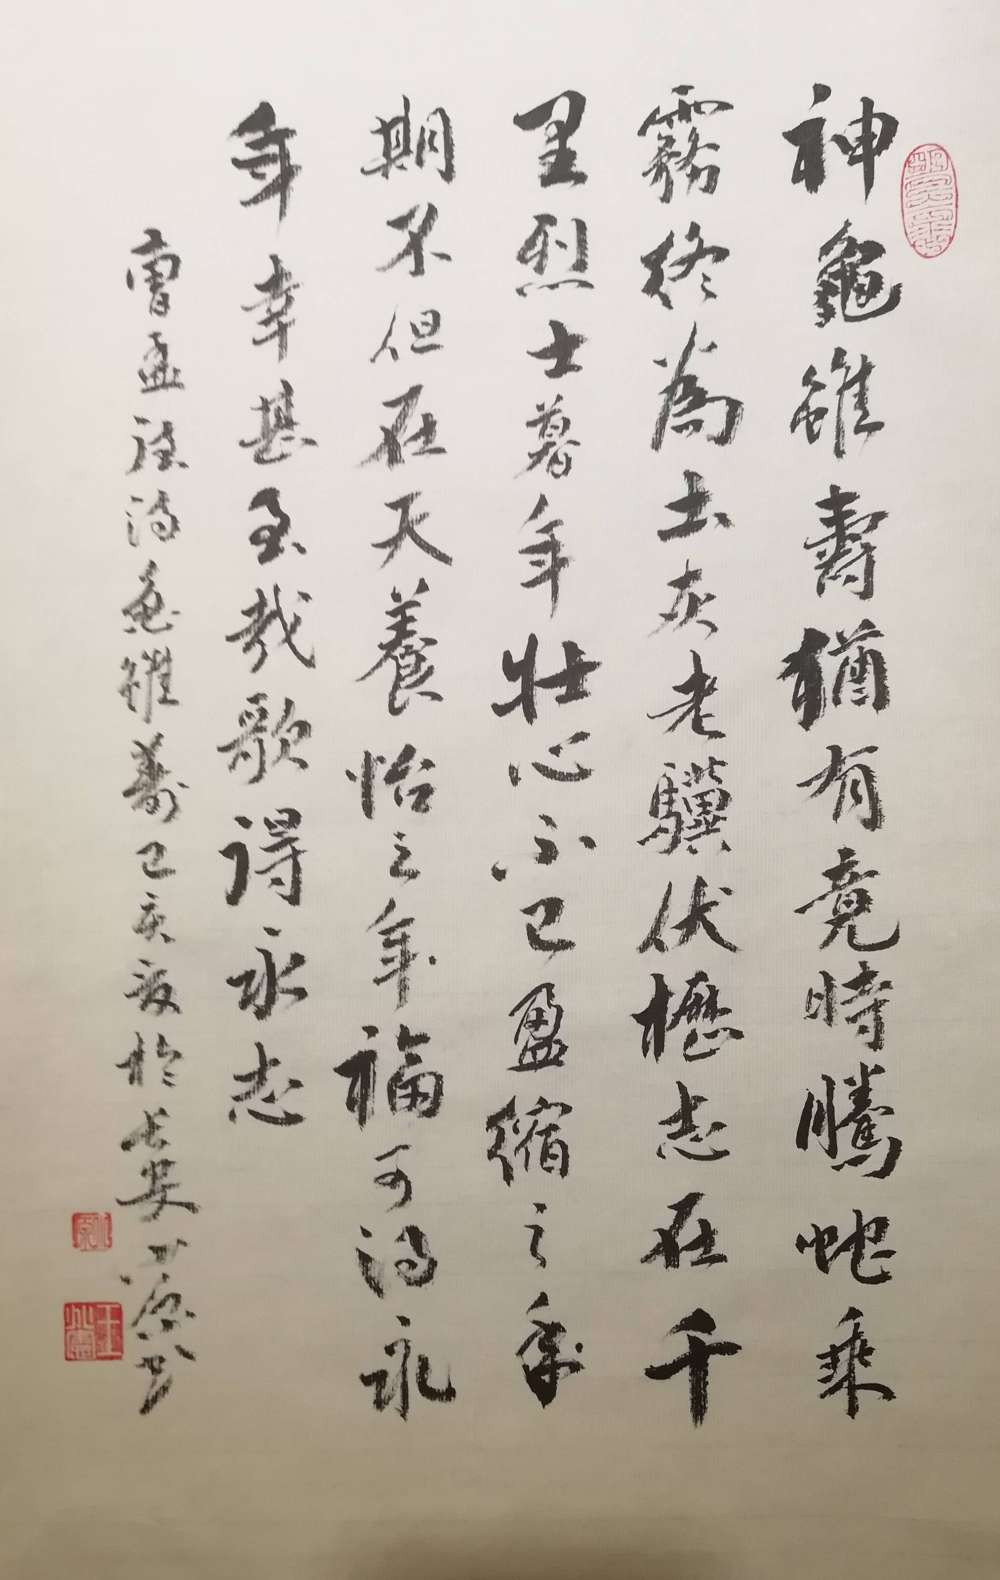 神龜雖壽猶有竟時騰蛇乘
霧終為土灰老驥伏櫪志在千
里烈士暮年壯心不已盈縮之
期不但在天養怡之年福可得永
年幸甚至哉歌得永志
曹孟德詩龜雖壽己亥夏於長安